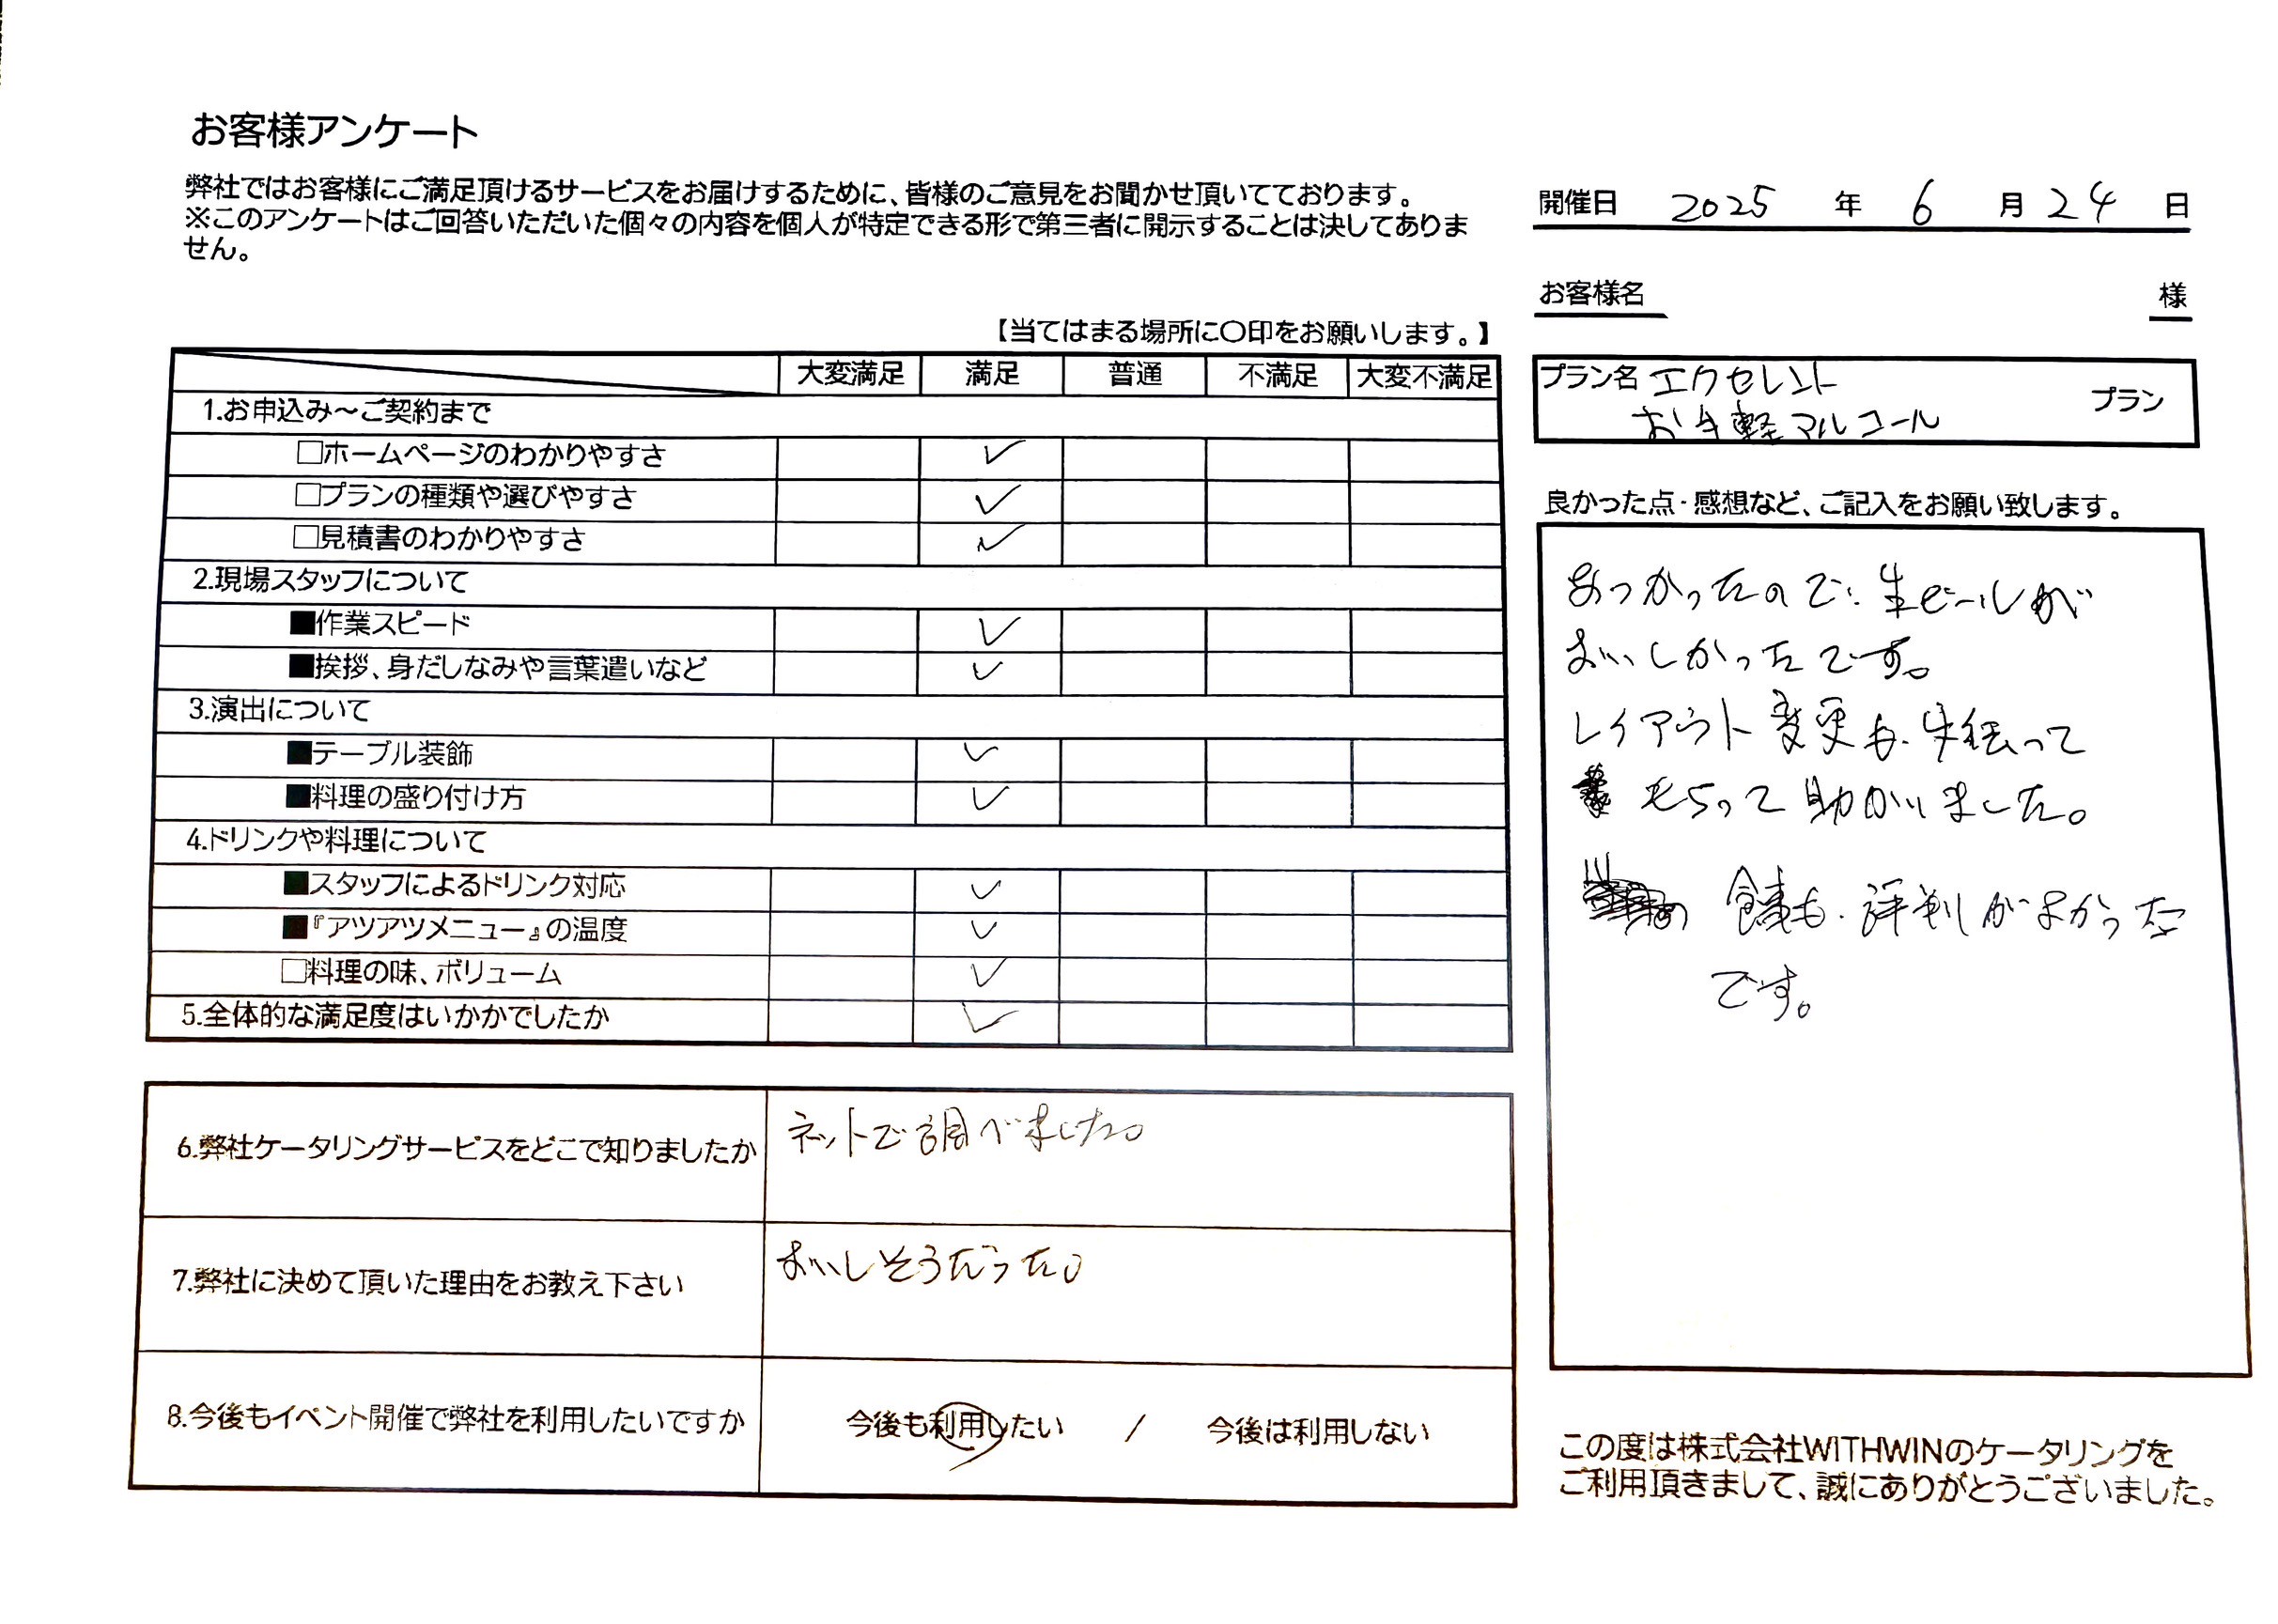 お客様アンケート
弊社ではお客様にご満足頂けるサービスをお届けするために、皆様のご意見をお聞かせ頂いてております。
※このアンケートはご回答いただいた個々の内容を個人が特定できる形で第三者に開示することは決してありま
せん。
【当てはまる場所に〇印をお願いします。】
大変満足 満足 普通 不満足 大変不満足
1.お申込み～ご契約まで
□ホームページのわかりやすさ ✓
□プランの種類や選びやすさ ✓
□見積書のわかりやすさ ✓
2.現場スタッフについて
■作業スピード ✓
■挨拶、身だしなみや言葉遣いなど ✓
3.演出について
■テーブル装飾 ✓
■料理の盛り付け方 ✓
4.ドリンクや料理について
■スタッフによるドリンク対応 ✓
■『アツアツメニュー』の温度 ✓
□料理の味、ボリューム ✓
5.全体的な満足度はいかかでしたか ✓
6.弊社ケータリングサービスをどこで知りましたか ネットで調べました。
7.弊社に決めて頂いた理由をお教え下さい おいしそうだった。
8.今後もイベント開催で弊社を利用したいですか 今後も利用したい / 今後は利用しない
開催日 2025 年 6 月 24 日
お客様名 様
プラン名 エクセレント プラン
お手軽アルコール
良かった点・感想など、ご記入をお願い致します。
あつかったので、生ビールが
おいしかったです。
レイアウト変更も、手伝って
もらって助かりました。
食事も、評判がよかった
です。
この度は株式会社WITHWINのケータリングを
ご利用頂きまして、誠にありがとうございました。